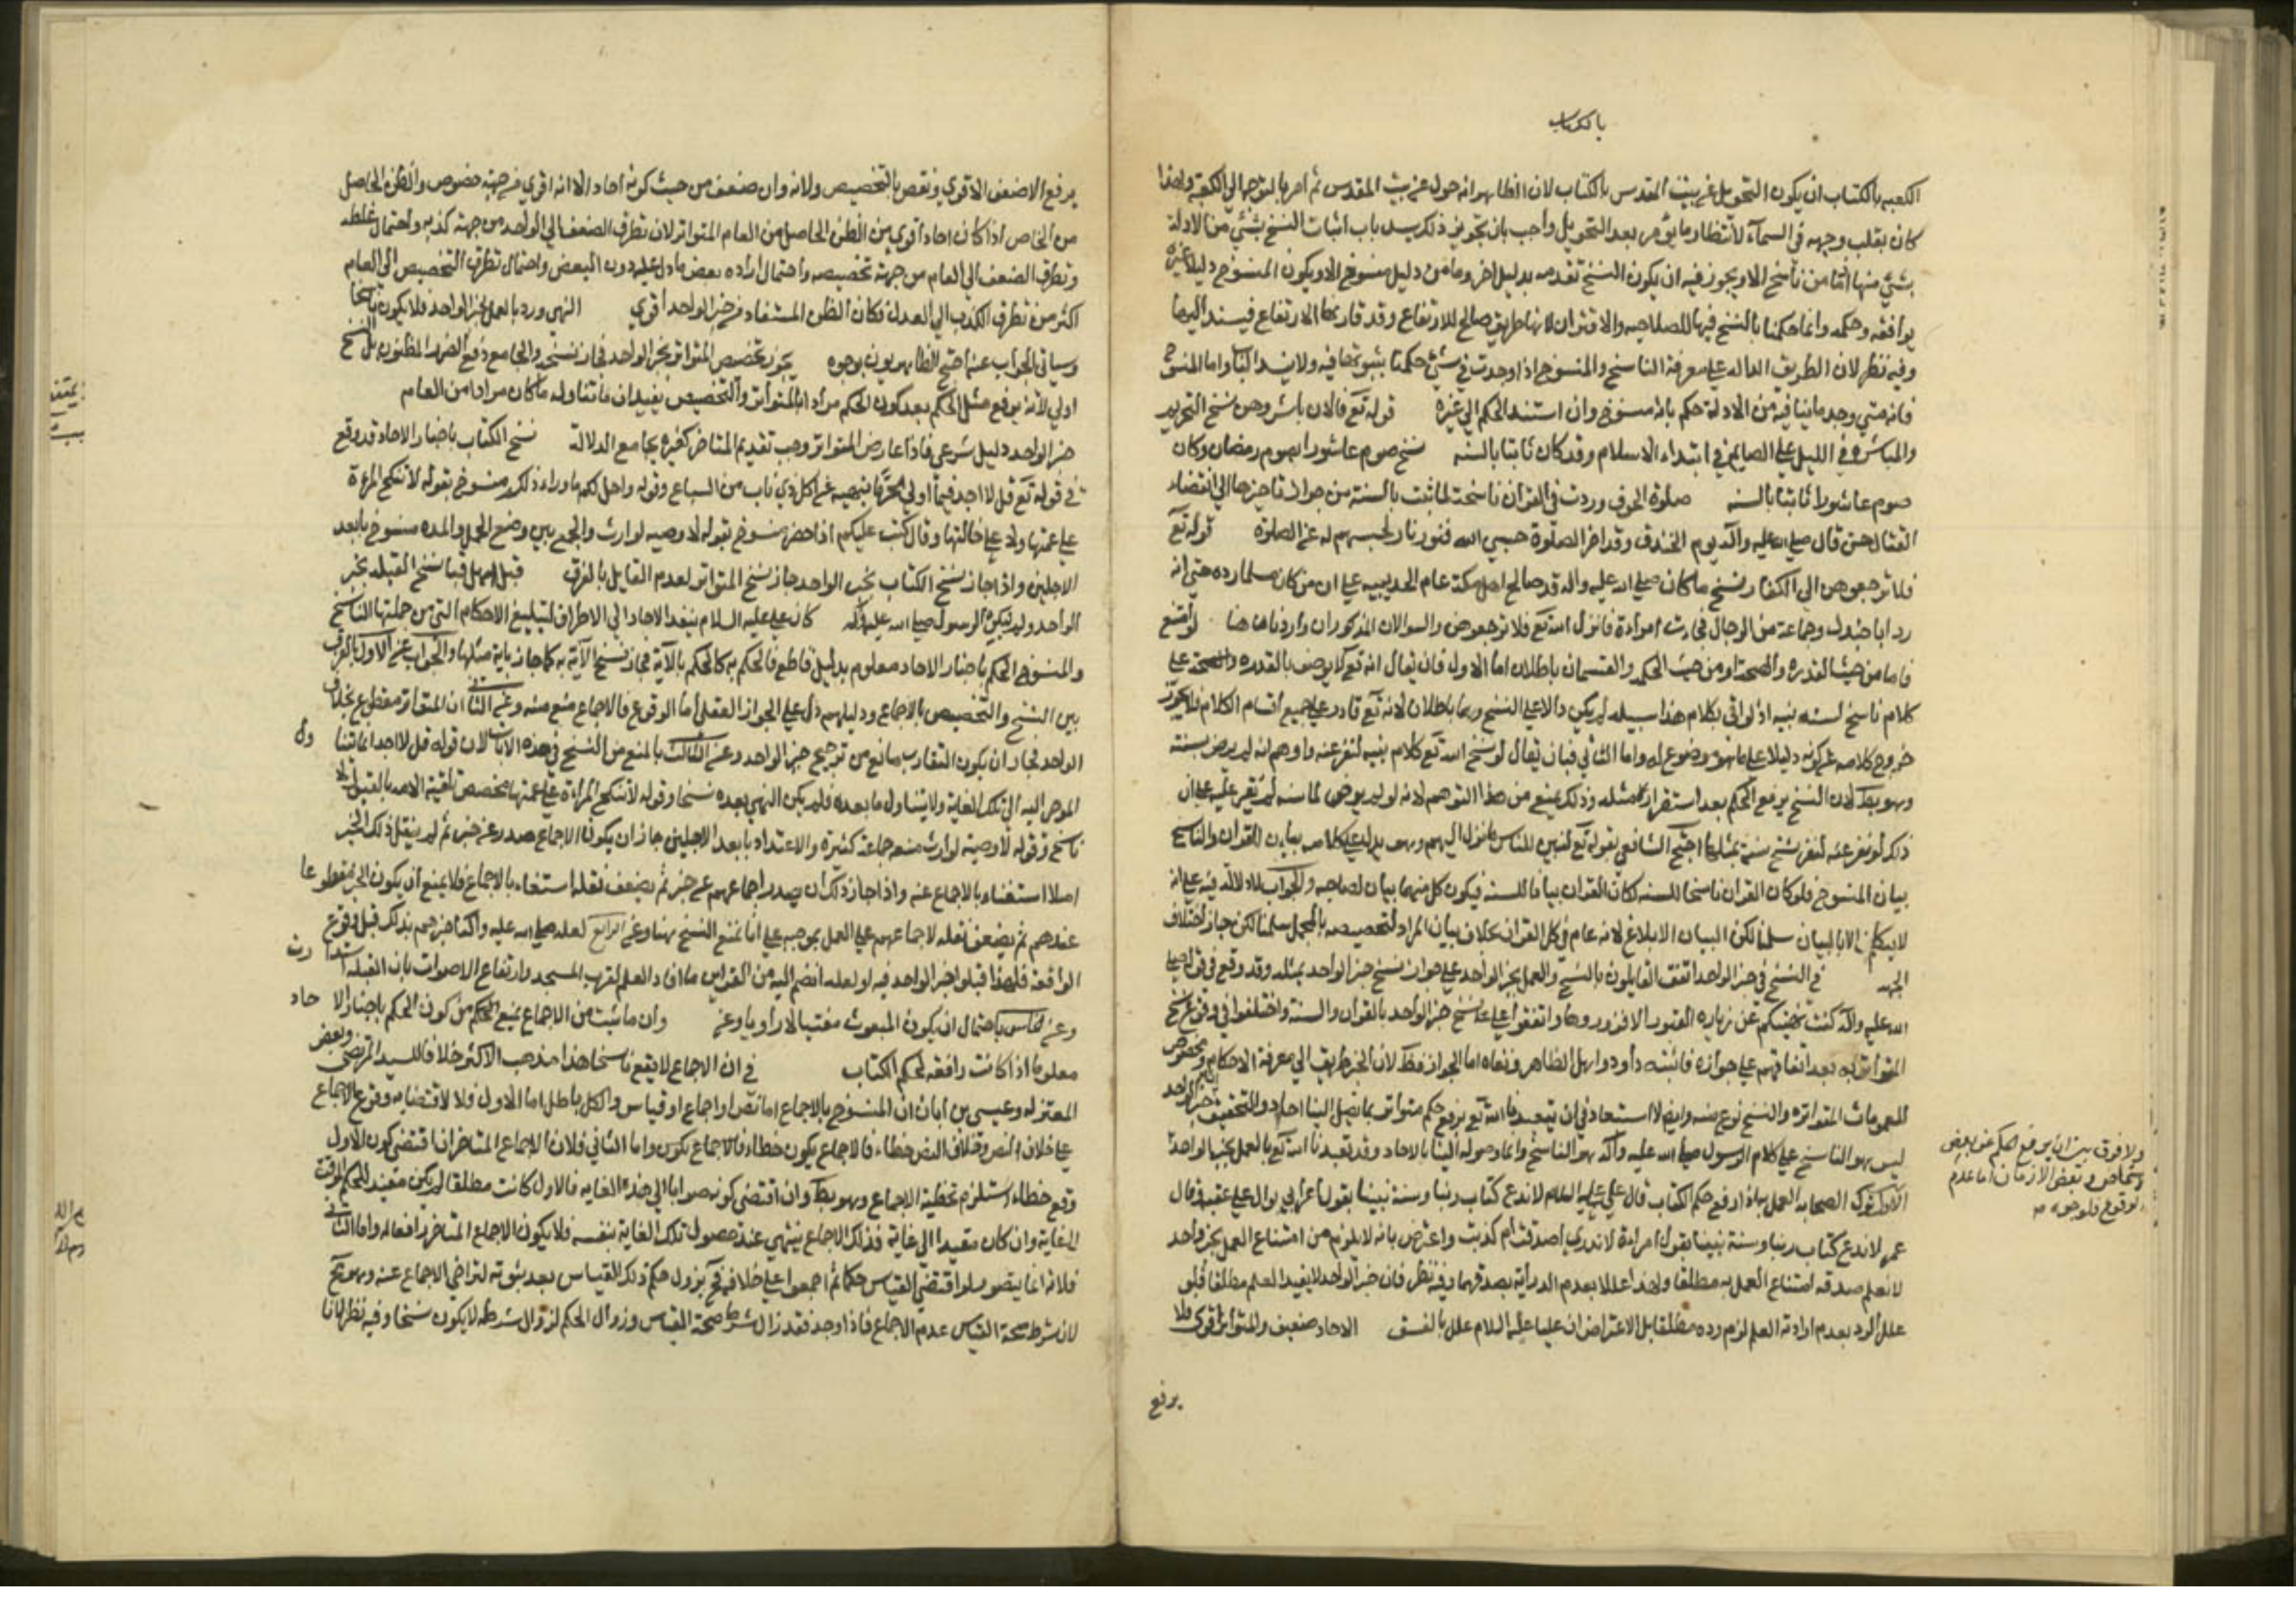 بالكتاب
الكعبه بالكتاب ان يكون التحويل عن بيت المقدس بالكتاب لان الظاهر انه حول عن بيت المقدس ثم امر بالتوجه الى الكعبة ولهذا
كان يقلب وجهه في السماء لانتظار ما يؤمر بعد التحويل واجب بان تجويز ذلك يسد باب اثبات النسخ بشئ من الادلة
بشئ منها اذ ما من ناسخ الا ويجوز فيه ان يكون النسخ تقدمه بدليل اخر وما من دليل منسوخ الا ويكون المنسوخ دليلا غيره
يوافقه وحكمه وانما حكمنا بالنسخ فيها للصلاحيه والاقتران لانها طريق صالح للارتفاع وقد قارنها الارتفاع فيسند اليها
وفيه نظر لان الطريق الداله على معرفة الناسخ والمنسوخ اذا وجدت في شئ حكمنا بثبوتها فيه ولا يسند الينا واما المنسوخ
فانه متى وجد ما ينافيه من الادلة حكم بانه منسوخ وان استند الحكم الى غيره قوله تع فالان باشروهن نسخ التحريم
والمباشرة في الليل على الصايم في ابتداء الاسلام وقد كان ثابتا بالسنه نسخ صوم عاشورا بصوم رمضان وكان
صوم عاشورا ثابتا بالسنه صلوة الخوف وردت في القران ناسخة لما ثبت بالسنة من جواز تاخيرها الى انقضاء
القتال حتى قال صلى الله عليه واله يوم الخندق وقد اخر الصلوة حبسي الله قبورنا لحبسهم له عن الصلوة قوله تع
فلا ترجعوهن الى الكفار نسخ ما كان صلى الله عليه واله قد صالح اهل مكة عام الحديبيه على ان من كان مسلما رده حتى انه
رد ابا جندل وجماعة من الرجال فجاءت امرأة فانزل الله تع فلا ترجعوهن والسوالان المذكوران واردان هاهنا لو امتنع
فاما من حيث القدره والصحه او من حيث الحكمه والقسمان باطلان اما الاول فان يقال انه تع لا يوصف بالقدره والصحة على
كلام ناسخ لسنه نبيه اذ لو اتى بكلام هذا سبيله لم يكن دالا على النسخ وهما باطلان لانه تع قادر على جميع اقسام الكلام فلا يجوز
خروج كلامه عن كونه دليلا على ما هو موضوع له واما الثاني فبان يقال لو نسخ الله تع كلام نبيه لنفر عنه واوهم انه لم يرض بسنته
وهو بط لان النسخ يرفع الحكم بعد استقرار مثله وذلك يمنع من هذا التوهم لانه لو لم يرض لما سنه لم يقر عليه على ان
ذلك لو نفر عنه لنفر نسخ سنة بمثلها احتج الشافعي بقوله تع لتبين للناس ما نزل اليهم وهو يدل على كلامه بيان القران والناسخ
بيان المنسوخ فلو كان القران ناسخا للسنه لكان القران بيانا للسنه فيكون كل منهما بيان لصاحبه والجواب لا دلالة فيه على انه
لا يتكلم الا بالبيان سلمنا لكن البيان الابلاغ لانه عام في كل القران بخلاف بيان المراد لتخصيصه بالمجمل سلمنا لكن جاز اختلاف
الجهه في النسخ في خبر الواحد اتفق القايلون بالنسخ والعمل بخبر الواحد على جواز نسخ خبر الواحد بمثله وقد وقع في قوله صلى
الله عليه واله كنت نهيتكم عن زيارة القبور الا فزوروها واتفقوا على نسخ خبر الواحد بالقران والسنة واختلفوا في وقوع نسخ
المتواتر به بعد اتفاقهم على جوازه فاثبته داود واهل الظاهر ونفاه اما الجواز فظ لان الخبر طريق الى معرفة الاحكام وتخصيص
العمومات المتواترة والنسخ نوع منه وايضا لا استبعاد في ان يتعبدنا الله تع برفع حكم متواتر بما يصل الينا احاد والتحقيق ان خبر الواحد
ليس هو الناسخ على كلام الرسول صلى الله عليه واله هو الناسخ وانما وصوله الينا بالاحاد وقد تعبدنا الله تع بالعمل بخبر الواحد
الاول ترك الصحابه العمل به اذا رفع حكم الكتاب قال علي عليه السلام لا ندع كتاب ربنا وسنة نبينا بقول اعرابي بوال على عقبيه وقال
عمر لا ندع كتاب ربنا وسنة نبينا بقول امراة لا ندري اصدقت ام كذبت واعترض بانه لا يلزم من امتناع العمل بخبر واحد
لا نعلم صدقه امتناع العمل به مطلقا ولهذا عللا بعدم الدراية بصدقهما وفيه نظر فان خبر الواحد لا يفيد العلم مطلقا فلو
علل الرد بعدم ارادته العلم لزم رده مطلقا بل الاعتراض ان عليا عليه السلام علل بالفسق الاحاد ضعيف والمتواتر اقوى فلا
يرفع
ولا فرق بين ان يرفع الحكم عن بعض
الاشخاص وبعض الازمان اما عدم
الوقوع فلوجوه
يرفع الاضعف الاقوى ونقض بالتخصيص ولانه وان ضعف من حيث كونه احاد الا انه اقوى من جهة خصوص والظن الحاصل
من الخاص اذا كان احاد اقوى من الظن الحاصل من العام المتواتر لان تطرق الضعف الى الواحد من جهة كذبه واحتمال غلطه
وتطرق الضعف الى العام من جهة تخصيصه واحتمال اراده بعض ما دل عليه دون البعض واحتمال تطرق التخصيص الى العام
اكثر من تطرق الكذب الى العدل فكان الظن المستفاد من خبر الواحد اقوى النهي ورد بالعمل بخبر الواحد فلا يكون ناسخا
وسياتي الجواب عنه احتج الظاهريون بوجوه يجوز تخصيص المتواتر بخبر الواحد فجاز نسخه والجامع دفع الضرر المظنون بل النسخ
اولى لانه يرفع مثل الحكم بعد كون الحكم مرادا بالمتواتر والتخصيص يفيد ان ما تناوله ما كان مرادا من العام
خبر الواحد دليل شرعي فاذا عارض المتواتر وجب تقديم المتاخر كغيره بجامع الدلالة نسخ الكتاب باخبار الاحاد قد وقع
في قوله تع قل لا اجد فيما اوحي الي محرما بنهيه عن اكل ذي ناب من السباع وقوله واحل لكم ما وراء ذلكم منسوخ بقوله لا تنكح المراة
على عمتها ولا على خالتها وقال كتب عليكم اذا حضر منسوخ بقوله لا وصيه لوارث والجمع بين وضع الحمل والمده منسوخ بابعد
الاجلين واذا جاز نسخ الكتاب بخبر الواحد جاز نسخ المتواتر لعدم القايل بالفرق قبل اهل قبا نسخ القبله بخبر
الواحد ولم ينكر الرسول صلى الله عليه واله كان عليه السلام ينفذ الاحاد الى الاطراف لتبليغ الاحكام التي من جملتها الناسخ
والمنسوخ الحكم باخبار الاحاد معلوم بدليل قاطع فالحكم به كالحكم بالاية فجاز نسخ الاية به كما جاز باية مثلها والجواب عن الاول بالفرق
بين النسخ والتخصيص بالاجماع ودليلهم دل على الجواز العقلي اما الوقوع فالاجماع منع منه وعن الثاني ان المتواتر مقطوع بخلاف
الواحد فجاز ان يكون التفاوت مانع من ترجيح خبر الواحد وعن الثالث بالمنع من النسخ في هذه الايات لان قوله قل لا اجد انما تناول
الموحى اليه الى تلك الغاية ولا يتناول ما بعده فلم يكن النهي بعده نسخا وقوله لا تنكح المراة على عمتها مخصص تلقته الامه بالقبول لا
ناسخ وقوله لا وصية لوارث منعه جماعة كثيرة والاعتداد بابعد الاجلين جاز ان يكون الاجماع صدر عن خبر ثم لم ينقل ذلك الخبر
اصلا استغناء بالاجماع عنه واذا جاز ذلك ان يصدر اجماعهم عن خبر ثم يضعف نقله استغناء بالاجماع فلا يمنع ان يكون الخبر مقطوعا
عندهم ثم يضعف نقله لاجماعهم على العمل بموجبه على انا نمنع النسخ بهما وعن الرابع لعله صلى الله عليه واله اخبرهم بذلك قبل وقوع
الواقعة فلهذا قبلوا خبر الواحد فيه او لعله انضم اليه من القراين ما افاد العلم لقرب المسجد وارتفاع الاصوات بان القبله استدارت
وعن الخامس باحتمال ان يكون المبعوث مفتيا لا راويا وعن وان ما ثبت من الاجماع يمنع الحكم من كون الحكم باخبار الاحاد
معلوما اذا كانت رافعه لحكم الكتاب في ان الاجماع لا يقع ناسخا هذا مذهب الاكثر خلافا للسيد المرتضى وبعض
المعتزله وعيسى بن ابان ان المنسوخ بالاجماع اما نص او اجماع او قياس والكل باطل اما الاول فلا لاقتضايه وقوع الاجماع
على خلاف النص وخلاف النص خطاء فالاجماع يكون خطاء فالاجماع يكون واما الثاني فلان الاجماع المتاخر ان اقتضى كون الاول
وقع خطاء استلزم تخطية الاجماع وهو بط وان اقتضى كونه صوابا الى هذه الغايه فالاول ان كانت مطلقا لم يكن مفيد للحكم الموقت
الى غاية وان كان مقيدا الى غاية فذلك الاجماع ينتهي عند حصول تلك الغاية بنفسه فلا يكون الاجماع المتاخر رافعا له واما الثالث
فلانه انما يتصور لو اقتضى القياس حكما ثم اجمعوا على خلافه فح يزول حكم ذلك القياس بعد ثبوته لتراخي الاجماع عنه وهو مح
لان شرط صحة القياس عدم الاجماع فاذا وجد فقد زال شرط صحة القياس وزوال الحكم لزوال شرطه لا يكون نسخا وفيه نظر لانا